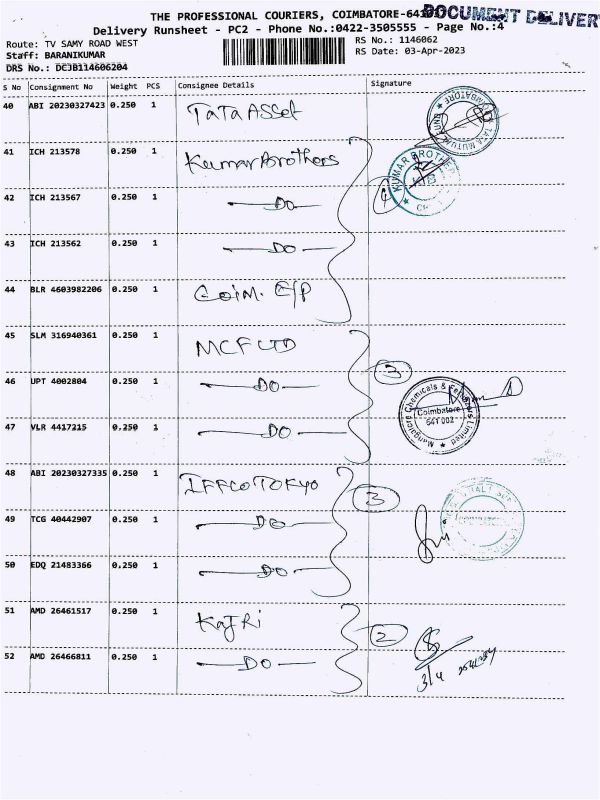 THE PROFESSIONAL COURIERS, COIMBATORE-641
DOCUMENT DELIVERY
Delivery Runsheet - PC2 - Phone No.:0422-3505555 - Page No.:4
Route: TV SAMY ROAD WEST
RS No.: 1146062
Staff: BARANIKUMAR
RS Date: 03-Apr-2023
DRS No.: DCJB114606204
S No Consignment No Weight PCS Consignee Details Signature
40 ABI 20230327423 0.250 1 TaTa Asset
COIMBATORE
TATA MUTUAL
41 ICH 213578 0.250 1 Kumar Brothers
KUMAR BROTHER
KB
42 ICH 213567 0.250 1 —DO—
43 ICH 213562 0.250 1 —DO—
44 BLR 4603982206 0.250 1 Coim. E/P
45 SLM 316940361 0.250 1 MCF LTD
3
46 UPT 4002804 0.250 1 —DO—
Mangalore Chemicals & Fertilizers Limited
Coimbatore
641 002
47 VLR 4417215 0.250 1 —DO—
48 ABI 20230327335 0.250 1 IFFCO TOKYO
3
49 TCG 40442907 0.250 1 —DO—
50 EDQ 21483366 0.250 1 —DO—
51 AMD 26461517 0.250 1 KaJRi
2
52 AMD 26466811 0.250 1 —DO—
3/4